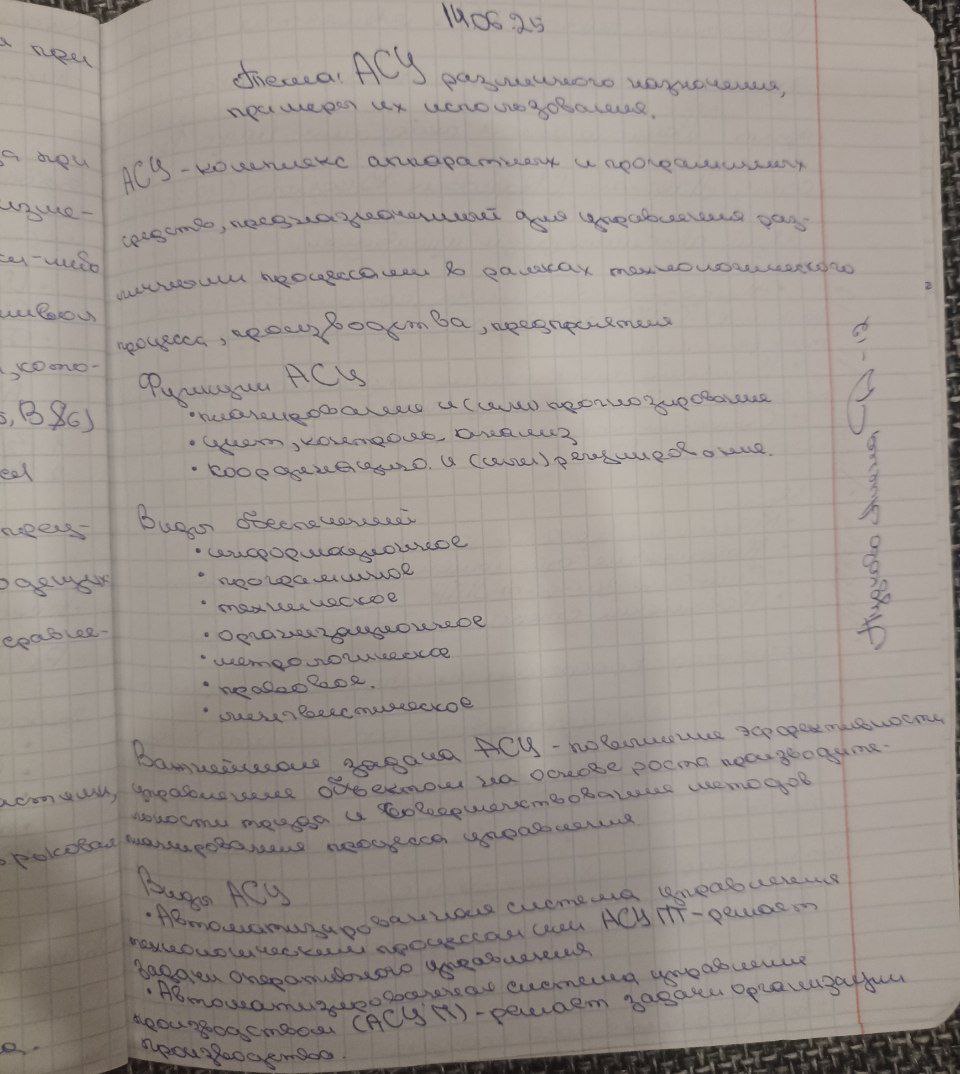 14.06.25
Тема: АСУ различного назначения,
примеры их использования.
АСУ - комплекс аппаратных и программных
средств, предназначенный для управления раз-
личными процессами в рамках технологического
процесса, производства, предприятия
Функции АСУ
• планирование и (или) прогнозирование
• учет, контроль, анализ
• координацию и (или) регулирование.
Виды обеспечений
• информационное
• программное
• техническое
• организационное
• метрологическое
• правовое.
• лингвистическое
Важнейшая задача АСУ - повышение эффективности
управления объектом на основе роста производите-
льности труда и совершенствования методов
планирования процесса управления
Виды АСУ
• Автоматизированная система управления
технологическим процессом или АСУ ТП - решает
задачи оперативного управления
• Автоматизированная система управление
производством (АСУ П) - решает задачи организации
производства.
я при
я при
изме-
си-либо
, кото-
, В86)
сравне-
астями,